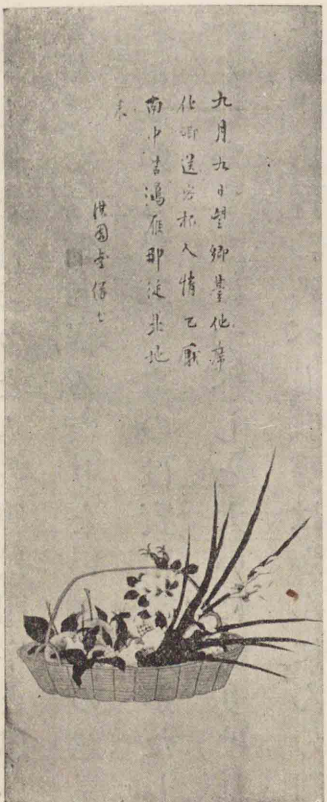 九月九日望鄉臺他席
他鄉送客杯人情已厭
南中苦鴻雁那從北地
来
園